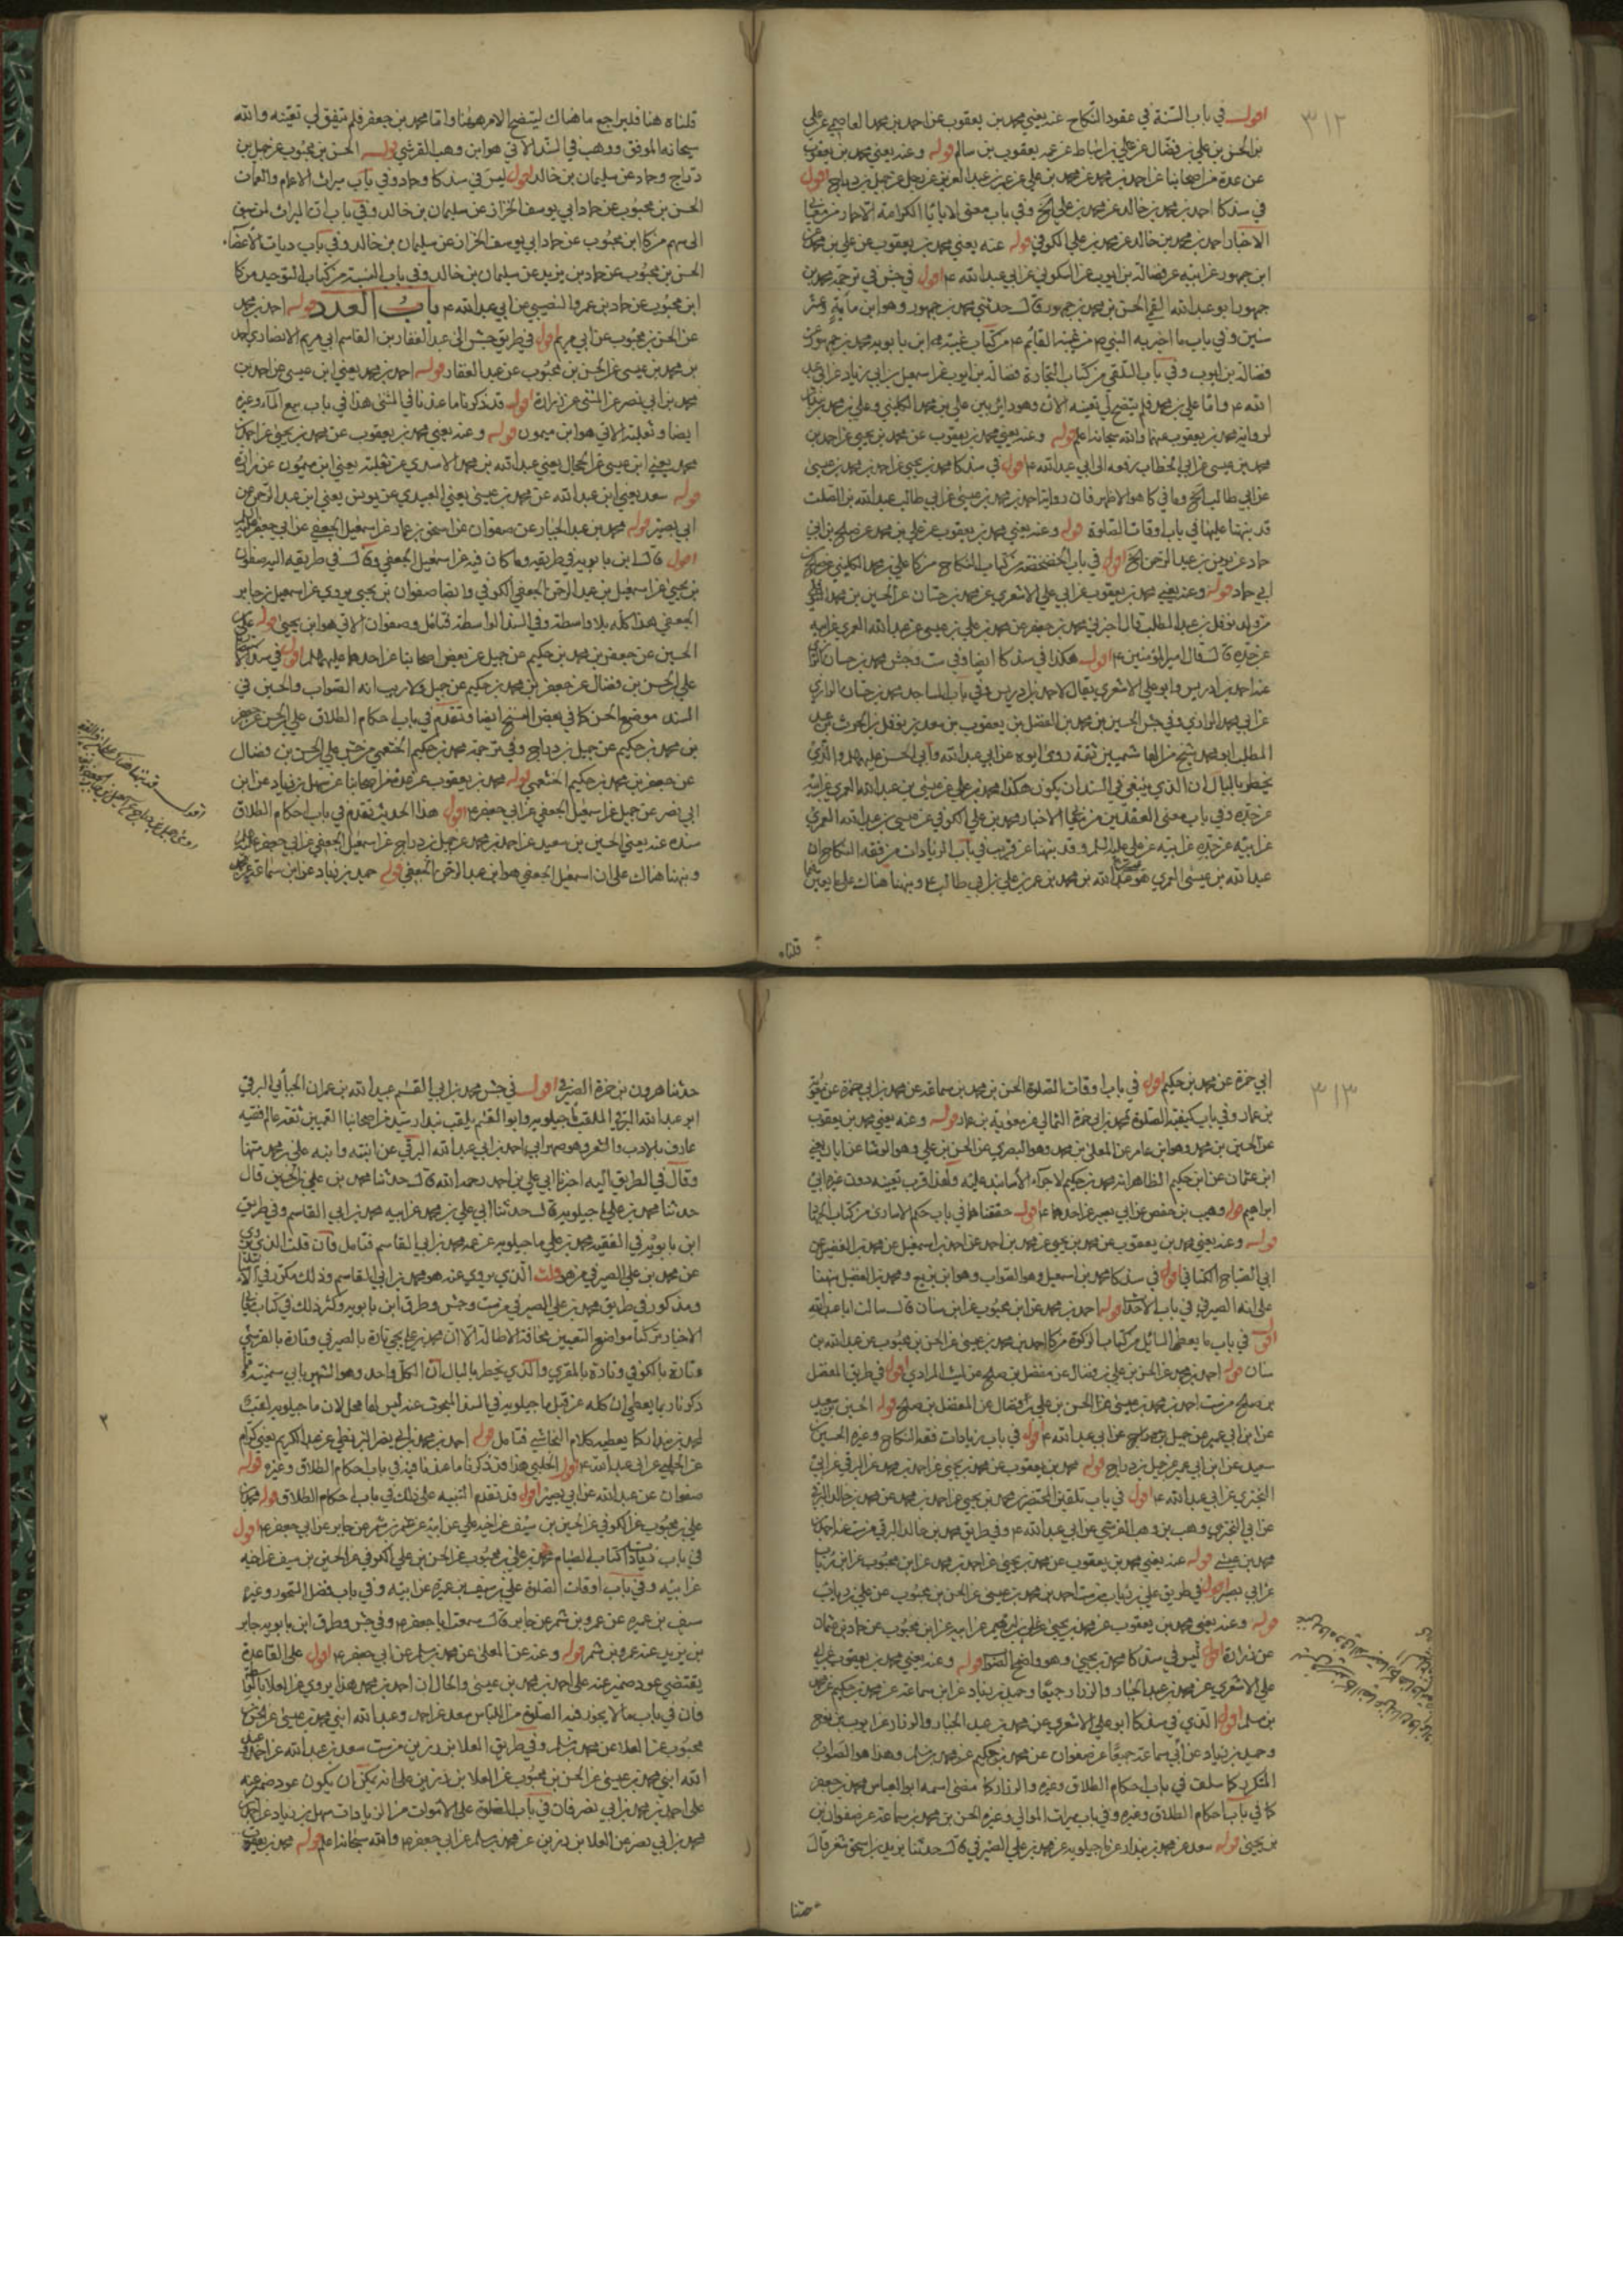 ٣١٢
اقول في باب السنة في عقود النكاح عنه يعني محمد بن يعقوب عن احمد بن محمد العاصمي عن علي
بن الحسن بن علي بن فضال عن علي بن اسباط عن عمه يعقوب بن سالم قوله وعنه يعني محمد بن يعقوب
عن عدة من اصحابنا عن احمد بن محمد عن محمد بن علي عن عبد العزيز عن رجل عن جميل بن دراج اقول
في سند كا احمد بن محمد بن خالد عن محمد بن علي الخ وفي باب معنى لا يابى الكرامة الا حمار من معاني
الاخبار احمد بن محمد بن خالد عن محمد بن علي الكوفي قوله عنه يعني محمد بن يعقوب عن علي بن محمد
ابن جمهور عن ابيه عن فضالة بن ايوب عن السكوني عن ابي عبد الله ع اقول في جش في ترجمة محمد بن
جمهور ابو عبد الله القمي الحسن بن محمد بن جمهور قال حدثني محمد بن جمهور وهو ابن مأية وعشر
سنين وفي باب ما اخبر به النبي ص من غيبة القائم ع من كتاب غيبة ابن بابويه محمد بن جمهور عن
فضالة بن ايوب وفي باب التلقي من كتاب التجارة فضالة بن ايوب عن اسمعيل بن ابي زياد عن ابي عبد
الله ع واما علي بن محمد فلم يتضح لي تعينه الان وهو دائر بين علي بن محمد الكليني وعلي بن محمد بن بندار
لرواية محمد بن يعقوب عنهما والله سبحانه اعلم قوله وعنه يعني محمد بن يعقوب عن محمد بن يحيى عن احمد بن
محمد بن عيسى عن ابي الخطاب رفعه الى ابي عبد الله ع اقول في سند كا محمد بن يحيى عن احمد بن محمد بن عيسى
عن ابي طالب الخ وما في كا هو الاظهر فان رواية احمد بن محمد بن عيسى عن ابي طالب عبد الله بن الصلت
قد نبهنا عليها في باب اوقات الصلوة قوله وعنه يعني محمد بن يعقوب عن علي بن محمد عن صالح بن ابي
حماد عن يونس بن عبد الرحمن الخ اقول في باب الخضخضة من كتاب النكاح من كا علي بن محمد الكليني عن صالح بن
ابي حماد قوله وعنه يعني محمد بن يعقوب عن ابي علي الاشعري عن محمد بن حسان عن الحسين بن محمد
من ولد نوفل بن عبد المطلب قال اخبرني محمد بن جعفر عن محمد بن علي بن عيسى عن عبد الله العمري عن ابيه
عن جده قال قال امير المؤمنين ع اقول هكذا في سند كا ايضا وفي ست وجش محمد بن حسان الرازي
عنه احمد بن ادريس وابو علي الاشعري يقال لاحمد بن ادريس وفي باب المساجد محمد بن حسان الرازي
عن ابي محمد الرازي وفي جش الحسين بن محمد بن الفضل بن يعقوب بن سعد بن نوفل بن الحرث بن عبد
المطلب ابو محمد شيخ من الهاشميين ثقة روى ابوه عن ابي عبد الله وابي الحسن عليهما السلام والذي
يخطر بالبال ان الذي ينبغي في السند ان يكون هكذا محمد بن علي عن عيسى بن عبد الله العمري عن ابيه
عن جده وفي باب معنى العقلين من معاني الاخبار محمد بن علي الكوفي عن عيسى بن عبد الله العمري
عن ابيه عن جده عن ابيه عن علي عليه السلام وقد نبهنا عن قريب في باب الزيادات من فقه النكاح ان
عبد الله بن عيسى العمري هو عبد الله بن محمد بن عمر بن علي بن ابي طالب ع ونبهنا هناك على ما يعين
قلناه
قلناه هنا فليراجع ما هناك ليتضح الامر هيهنا واما محمد بن جعفر فلم يتفق لي تعينه والله
سبحانه الموفق ووهب في السند الاتي هو ابن وهب القرشي قوله الحسن بن محبوب عن جميل بن
دراج وحماد عن سليمان بن خالد اقول ليس في سند كا وحماد وفي باب ميراث الاعمام والعمات
الحسن بن محبوب عن حماد ابي يوسف الخزاز عن سليمان بن خالد وفي باب ان الميراث لمن سبق
الى سهم من كا ابن محبوب عن حماد ابي يوسف الخزاز عن سليمان بن خالد وفي باب ديات الاعضاء
الحسن بن محبوب عن حماد بن يزيد عن سليمان بن خالد وفي باب النسبة من كتاب التوحيد من كا
ابن محبوب عن حماد بن عمرو النصيبي عن ابي عبد الله ع باب العدد قوله احمد بن محمد
عن الحسن بن محبوب عن ابي مريم اقول في طريق جش الى عبد الغفار بن القاسم ابي مريم الانصاري احمد
بن محمد بن عيسى عن الحسن بن محبوب عن عبد الغفار قوله احمد بن محمد يعني ابن عيسى عن احمد بن
محمد بن ابي نصر عن المثنى عن زرارة اقول قد ذكرنا ما عندنا في المثنى هذا في باب بيع الماء وغيره
ايضا وثعلبة الاتي هو ابن ميمون قوله وعنه يعني محمد بن يعقوب عن محمد بن يحيى عن احمد بن
محمد يعني ابن عيسى عن الحجال يعني عبد الله بن محمد الاسدي عن ثعلبة يعني ابن ميمون عن زرارة
قوله سعد يعني ابن عبد الله عن محمد بن عيسى يعني العبيدي عن يونس يعني ابن عبد الرحمن عن
ابي بصير قوله محمد بن عبد الجبار عن صفوان عن اسحق بن عمار عن اسمعيل الجعفي عن ابي جعفر عليه السلام
اقول قال ابن بابويه في طريقه وما كان فيه عن اسمعيل الجعفي وقال في طريقه اليه صفوان
بن يحيى عن اسمعيل بن عبد الرحمن الجعفي الكوفي وايضا صفوان بن يحيى يروي عن اسمعيل بن جابر
الجعفي هذا كله بلا واسطة وفي السند الواسطة فتأمل وصفوان الاتي هو ابن يحيى قوله علي بن
الحسين عن جعفر بن محمد بن حكيم عن جميل عن بعض اصحابنا عن احدهما عليهما السلام اقول في سند
علي بن الحسن بن فضال عن جعفر بن محمد بن حكيم عن جميل ولا ريب انه الصواب والحسين في
السند موضع الحسن كما في بعض النسخ ايضا وتقدم في باب احكام الطلاق علي بن الحسن عن جعفر
بن محمد بن حكيم عن جميل بن دراج وفي ترجمة محمد بن حكيم الخثعمي من جش علي بن الحسن بن فضال
عن جعفر بن محمد بن حكيم الخثعمي قوله محمد بن يعقوب عن عدة من اصحابنا عن سهل بن زياد عن ابن
ابي نصر عن جميل عن اسمعيل الجعفي عن ابي جعفر ع اقول هذا الحديث تقدم في باب احكام الطلاق
سنده عنه يعني الحسين بن سعيد عن احمد بن محمد عن جميل بن دراج عن اسمعيل الجعفي عن ابي جعفر عليه السلام
ونبهنا هناك على ان اسمعيل الجعفي هو ابن عبد الرحمن الجعفي قوله حميد بن زياد عن ابن سماعة عن محمد بن
٣١٣
ابي حمزة عن محمد بن حكيم اقول في باب اوقات الصلوة الحسن بن محمد بن سماعة عن محمد بن ابي حمزة عن معوية
بن عمار وفي باب كيفية الصلوة محمد بن ابي حمزة الثمالي عن معوية بن عمار قوله وعنه يعني محمد بن يعقوب
عن الحسين بن محمد وهو ابن عامر عن المعلى بن محمد وهو البصري عن الحسن بن علي وهو الوشا عن ابان يعني
ابن عثمان عن ابن حكيم الظاهر انه محمد بن حكيم لاجزاء الاسانيد عليه ولهذا قرب تعينه دون غيره ابي
ابراهيم قوله وهيب بن حفص عن ابي بصير عن احدهما ع اقول حققناها في باب حكم الاسارى من كتاب الجهاد
قوله وعنه يعني محمد بن يعقوب عن محمد بن يحيى عن محمد بن احمد عن احمد بن اسمعيل عن محمد بن الفضيل عن
ابي الصباح الكناني اقول في سند كا محمد بن اسمعيل وهو الصواب وهو ابن بزيع ومحمد بن الفضيل نبهنا
على انه الصيرفي في باب الاحداث قوله احمد بن محمد عن ابن محبوب عن ابن سنان قال سالت ابا عبد الله
اقول في باب ما يعطى السايل من كتاب الزكوة من كا احمد بن محمد بن عيسى عن الحسن بن محبوب عن عبد الله بن
سنان قوله احمد بن محمد عن الحسن بن علي بن فضال عن مفضل بن صالح عن ليث المرادي اقول في طريق المفضل
بن صالح من ست احمد بن محمد بن عيسى عن الحسن بن علي بن فضال عن المفضل بن صالح قوله الحسين بن سعيد
عن ابن ابي عمير عن جميل بن صالح عن ابي عبد الله ع اقول في باب زيادات فقه النكاح وغيره الحسين بن
سعيد عن ابن ابي عمير عن جميل بن دراج قوله محمد بن يعقوب عن محمد بن يحيى عن احمد بن محمد عن البرقي عن ابي
البختري عن ابي عبد الله ع اقول في باب تلقين المحتضرين محمد بن يحيى عن احمد بن محمد عن محمد بن خالد البرقي
عن ابي البختري وهب بن وهب القرشي عن ابي عبد الله ع وفي طريق محمد بن خالد البرقي من ست عنه احمد بن
محمد بن عيسى قوله عنه يعني محمد بن يعقوب عن محمد بن يحيى عن احمد بن محمد عن ابن محبوب عن ابن رئاب
عن ابي بصير اقول في طريق علي بن رئاب من ست احمد بن محمد بن عيسى عن الحسن بن محبوب عن علي بن رئاب
قوله وعنه يعني محمد بن يعقوب عن محمد بن يحيى عن علي بن ابراهيم عن ابيه عن ابن محبوب عن حماد بن عثمان
عن زرارة اقول ليس في سند كا محمد بن يحيى وهو واضح الصواب قوله وعنه يعني محمد بن يعقوب عن ابي
علي الاشعري عن محمد بن عبد الجبار والرزاز جميعا وحميد بن زياد عن ابن سماعة عن محمد بن حكيم عن محمد
بن مسلم اقول الذي في سند كا ابو علي الاشعري عن محمد بن عبد الجبار والرزاز عن ايوب بن نوح
وحميد بن زياد عن ابن سماعة جميعا عن صفوان عن محمد بن حكيم عن محمد بن مسلم وهذا هو الصواب
المتكرر كما سلف في باب احكام الطلاق وغيره والرزاز كما مضى اسمه ابو العباس محمد بن جعفر
كما في باب احكام الطلاق وغيره وفي باب ميراث الموالي وغيره الحسن بن محمد بن سماعة عن صفوان بن
بن يحيى قوله سعد عن محمد بن بندار عن ماجيلويه عن محمد بن علي الصيرفي قال حدثنا يزيد بن اسحق شعر قال
حدثنا
حدثنا هرون بن حمزة الصيرفي اقول في جش محمد بن ابي القسم عبد الله بن عمران الجنابي البرقي
ابو عبد الله البرقي الملقب ماجيلويه وابو القسم يلقب بندار سيد من اصحابنا القميين ثقة عالم فقيه
عارف بالادب والشعر وهو صهر ابي احمد بن ابي عبد الله البرقي عن ابنته وابنه علي بن محمد منها
وقال في الطريق اليه اخبرنا ابي علي بن احمد رحمه الله قال حدثنا محمد بن علي بن الحسين قال
حدثنا محمد بن علي ماجيلويه قال حدثنا ابي علي بن محمد عن ابيه محمد بن ابي القاسم وفي طريق
ابن بابويه في الفقيه محمد بن علي ماجيلويه عن عمه محمد بن ابي القاسم فتامل فان قلت الذي يروي
عن محمد بن علي الصيرفي من هو قلت الذي يروي عنه هو محمد بن ابي القاسم وذلك مكرر في
ومذكور في طريق محمد بن علي الصيرفي من ست وجش وطرق ابن بابويه وكثر ذلك في كتاب معاني
الاخبار تركنا مواضع التعيين مخافة الاطالة الا ان محمد بن علي يجئ تارة بالصيرفي وتارة بالقرشي
وتارة بالكوفي وتارة بالمقري والذي يخطر بالبال ان الكل واحد وهو الشهير بابي سمينة
ذكرنا ربما يعطي ان كله عن قبل ماجيلويه في السند المبحوث عنه ليس لها محل لان ماجيلويه لقب
محمد بن بندار كما يعطيه كلام النجاشي فتامل قوله احمد بن محمد بن ابي نصر البزنطي عن عبد الكريم يعني كرام
عن الحلبي عن ابي عبد الله ع اقول الحلبي هذا قد ذكرنا ما عندنا فيه في باب احكام الطلاق وغيره قوله
صفوان عن عبد الله عن ابي بصير اقول قد تقدم التنبيه على ذلك في باب احكام الطلاق قوله محمد بن
علي بن محبوب عن الكوفي عن الحسين بن سيف عن اخيه علي عن ابيه عن عمرو بن شمر عن جابر عن ابي جعفر ع اقول
في باب زيادات كتاب الصيام محمد بن علي بن محبوب عن الحسن بن علي الكوفي عن الحسين بن سيف عن اخيه
عن ابيه وفي باب اوقات الصلوة علي بن سيف بن عميرة عن ابيه وفي باب فضل السحور وغيره
سيف بن عميرة عن عمرو بن شمر عن جابر قال سمعت ابا جعفر ع وفي جش وطرق ابن بابويه جابر
بن يزيد عنه عمرو بن شمر قوله وعنه عن المعلى عن محمد بن مسلم عن ابي جعفر ع اقول على القاعدة
يقتضي عود ضمير عنه على احمد بن محمد بن عيسى والحال ان احمد بن محمد هذا يروي عن العلا بالواسطة
فان في باب ما لا يجوز فيه الصلوة من اللباس سعد عن احمد وعبد الله ابني محمد بن عيسى عن الحسن بن
محبوب عن العلا عن محمد بن مسلم وفي طريق العلا بن رزين من ست سعد بن عبد الله عن احمد وعبد
الله ابني محمد بن عيسى عن الحسن بن محبوب عن العلا بن رزين على انه يمكن ان يكون عود ضمير عنه
على احمد بن محمد بن ابي نصر فان في باب الصلوة على الاموات من الزيادات سهل بن زياد عن احمد بن
محمد بن ابي نصر عن العلا بن رزين عن محمد بن مسلم عن ابي جعفر ع والله سبحانه اعلم قوله محمد بن يعقوب